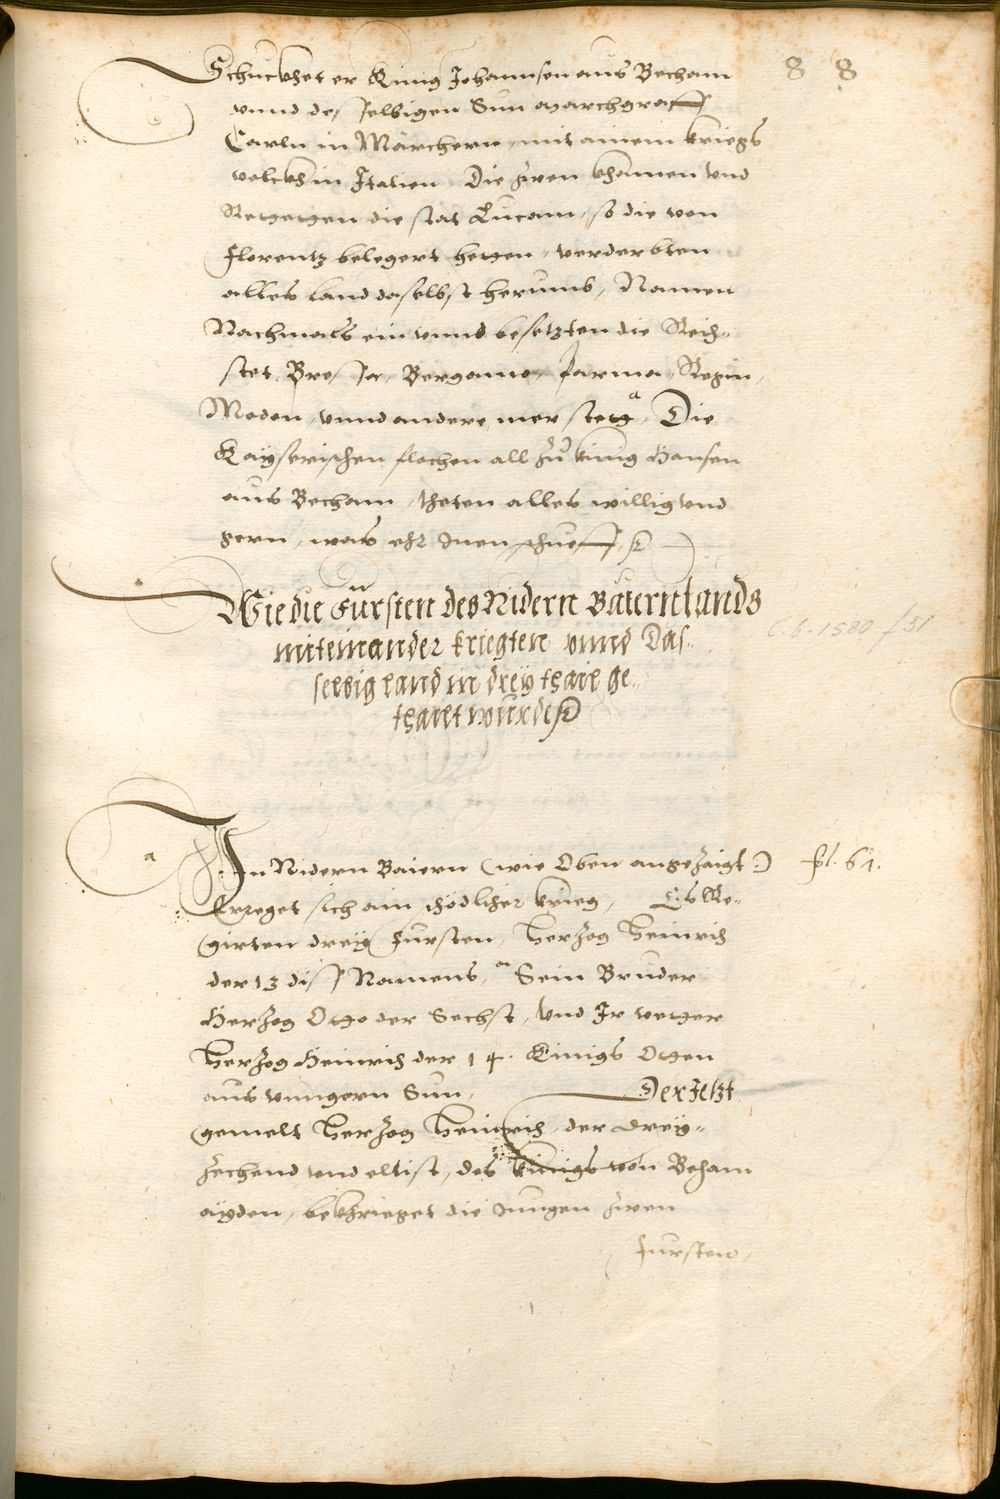 8 8
Schuckhet er Künig Johannsen aus Becham
vnnd desselbigen Sun Marchgraff
Carln in Märchern, mit ainem kriegs
volckh in Italien Die zwen khamen vnd
Retgetgen die stat Lucam, so die von
Florentz belegert hetgen, verderbten
alles land daselbst herumb, Namen
Nachmals ein vnnd besetzten die Reich..
stet, Bressa, Bergamo, Parma, Regin,
Moden, vnnd andere mer stetga, Die
Kayserischen flochen all zu künig Hansen
aus Becham, theten alles willig vnd
gern, was ehr Inen schueff
Wie die Fürsten des Nidern Baiernlands
miteinander kriegten vnnd Das..
selbig Land in dreÿ thail ge..
thailt wurde
a
In Nidern Baiern (wie Oben angezaigt:) fol. 64.
Erreget sich ain schödlicher krieg, Es Re..
girten dreÿ Fürsten, Herzog Heinrich
der 13 diss Namens, Sein Bruder
Herzog Otgo der Sechst, Vnd Ir vetger
Herzog Heinrich der 14. Künigs Otgen
aus vnngern Sun, Der Jetzt
gemelt Herzog Heinrich der dreÿ..
zechend vnd eltist, des künigs von Beham
aÿden, bekhrieget die Jungen zwen
Fürsten,